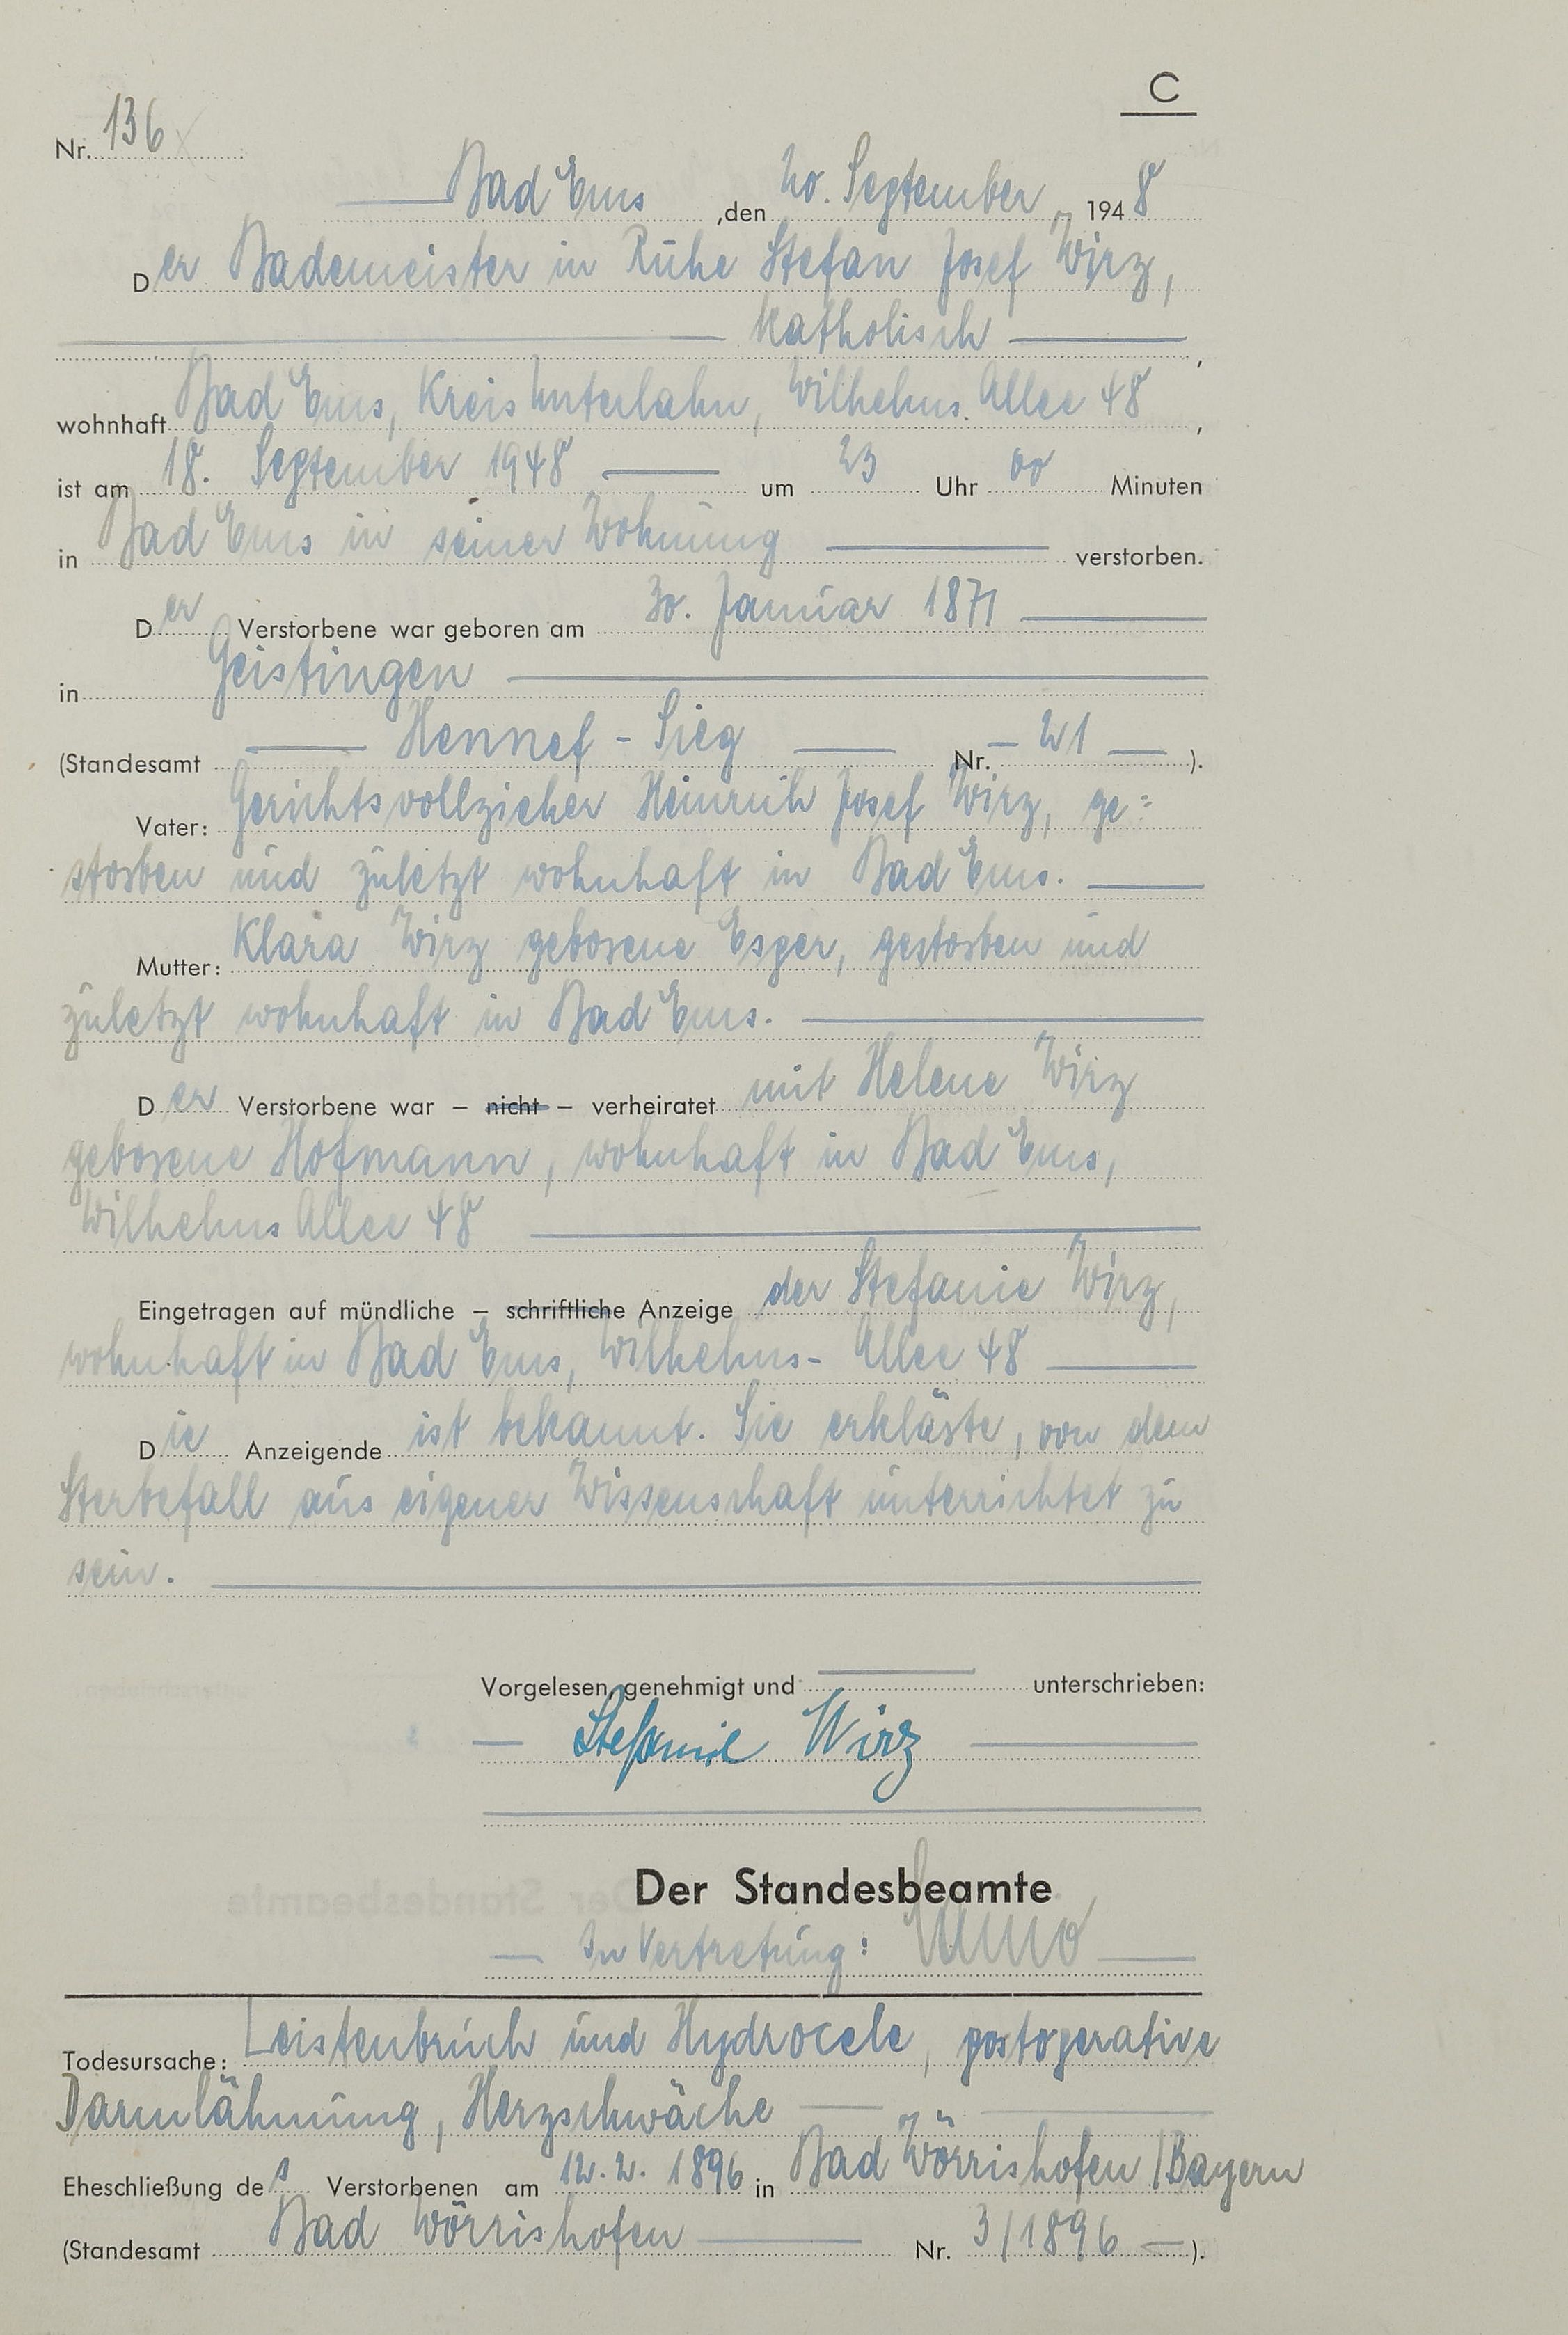 C
Nr. 136
Bad Ems, den 20. September 1948
Der Bademeister in Ruhe Stefan Josef Wirz,
katholisch,
wohnhaft Bad Ems, Kreis Unterlahn, Wilhelms. Allee 48,
ist am 18. September 1948 um 23 Uhr 00 Minuten
in Bad Ems in seiner Wohnung verstorben.
Der Verstorbene war geboren am 30. Januar 1871
in Geistingen
(Standesamt Hennef - Sieg Nr. 21).
Vater: Gerichtsvollzieher Heinrich Josef Wirz, ge=
storben und zuletzt wohnhaft in Bad Ems.
Mutter: Klara Wirz geborene Esper, gestorben und
zuletzt wohnhaft in Bad Ems.
Der Verstorbene war – nicht – verheiratet mit Helene Wirz
geborene Hofmann, wohnhaft in Bad Ems,
Wilhelms Allee 48
Eingetragen auf mündliche – schriftliche Anzeige der Stefanie Wirz,
wohnhaft in Bad Ems, Wilhelms- Allee 48
Die Anzeigende ist bekannt. Sie erklärte, von dem
Sterbefall aus eigener Wissenschaft unterrichtet zu
sein.
Vorgelesen, genehmigt und unterschrieben:
Stefanie Wirz
Der Standesbeamte
In Vertretung:
Todesursache: Leistenbruch und Hydrocele, postoperative
Darmlähmung, Herzschwäche
Eheschließung des Verstorbenen am 12.2. 1896 in Bad Wörrishofen / Bayern
(Standesamt Bad Wörrishofen Nr. 3/1896).